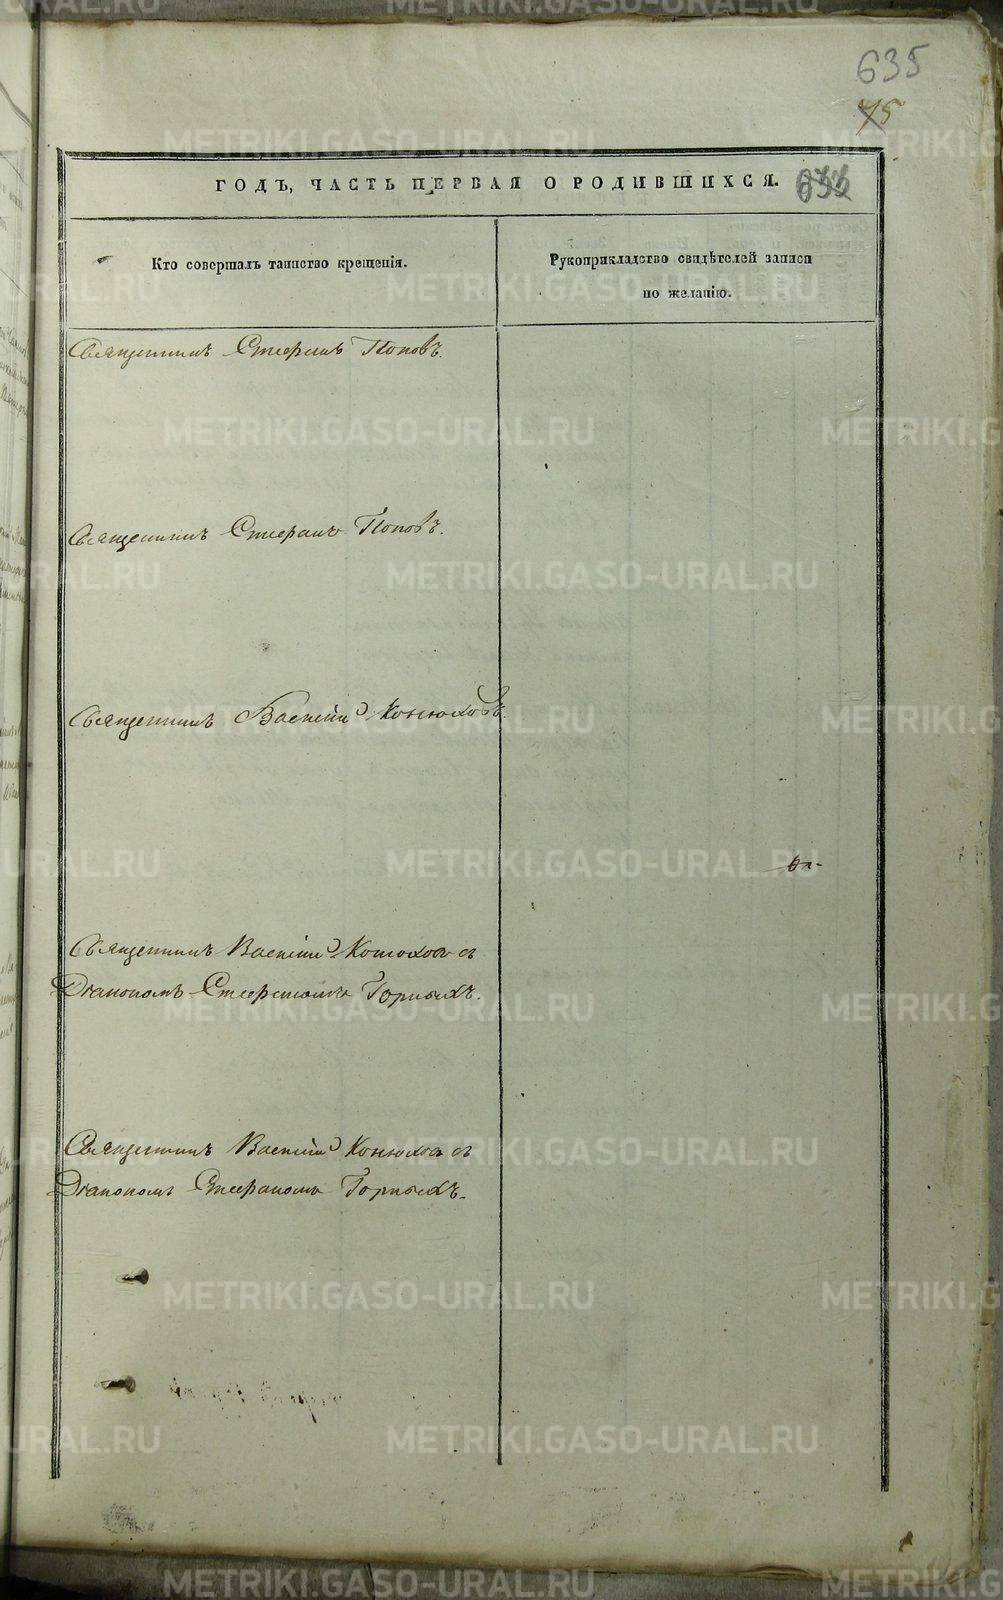 635
75
ГОДЪ, ЧАСТЬ ПЕРВАЯ О РОДИВШИХСЯ.
Кто совершалъ таинство крещенія.
Рукоприкладство свидѣтелей записи
по желанію.
Священникъ Стефанъ Поповъ.
Священникъ Стефанъ Поповъ.
Священникъ Василій Конюховъ.
Священникъ Василій Конюховъ съ
Діакономъ Стефаномъ Горныхъ.
Священникъ Василій Конюховъ съ
Діакономъ Стефаномъ Горныхъ.
METRIKI.GASO-URAL.RU